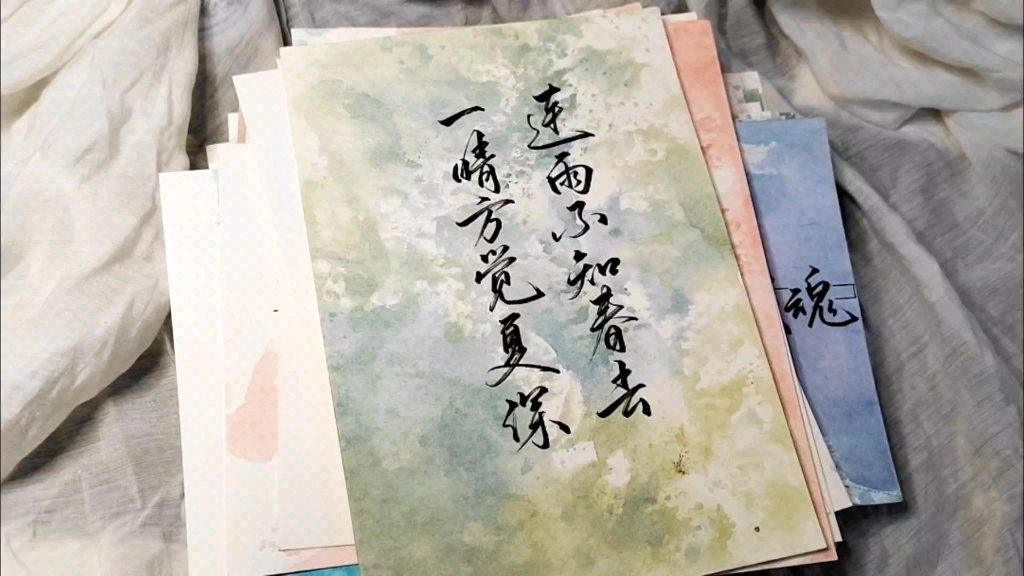 连雨不知春去
一晴方觉夏深
魂